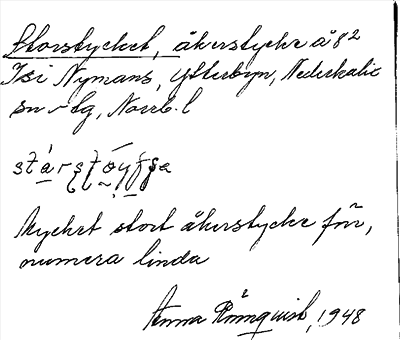 Storstycket, åkerstycke å 8²
Isi Nymans, Ytterbyn, Nederkalix
sn o tg, Norrb. l
Mycket stort åkerstycke förr,
numera linda
Anna Rönnquist, 1948